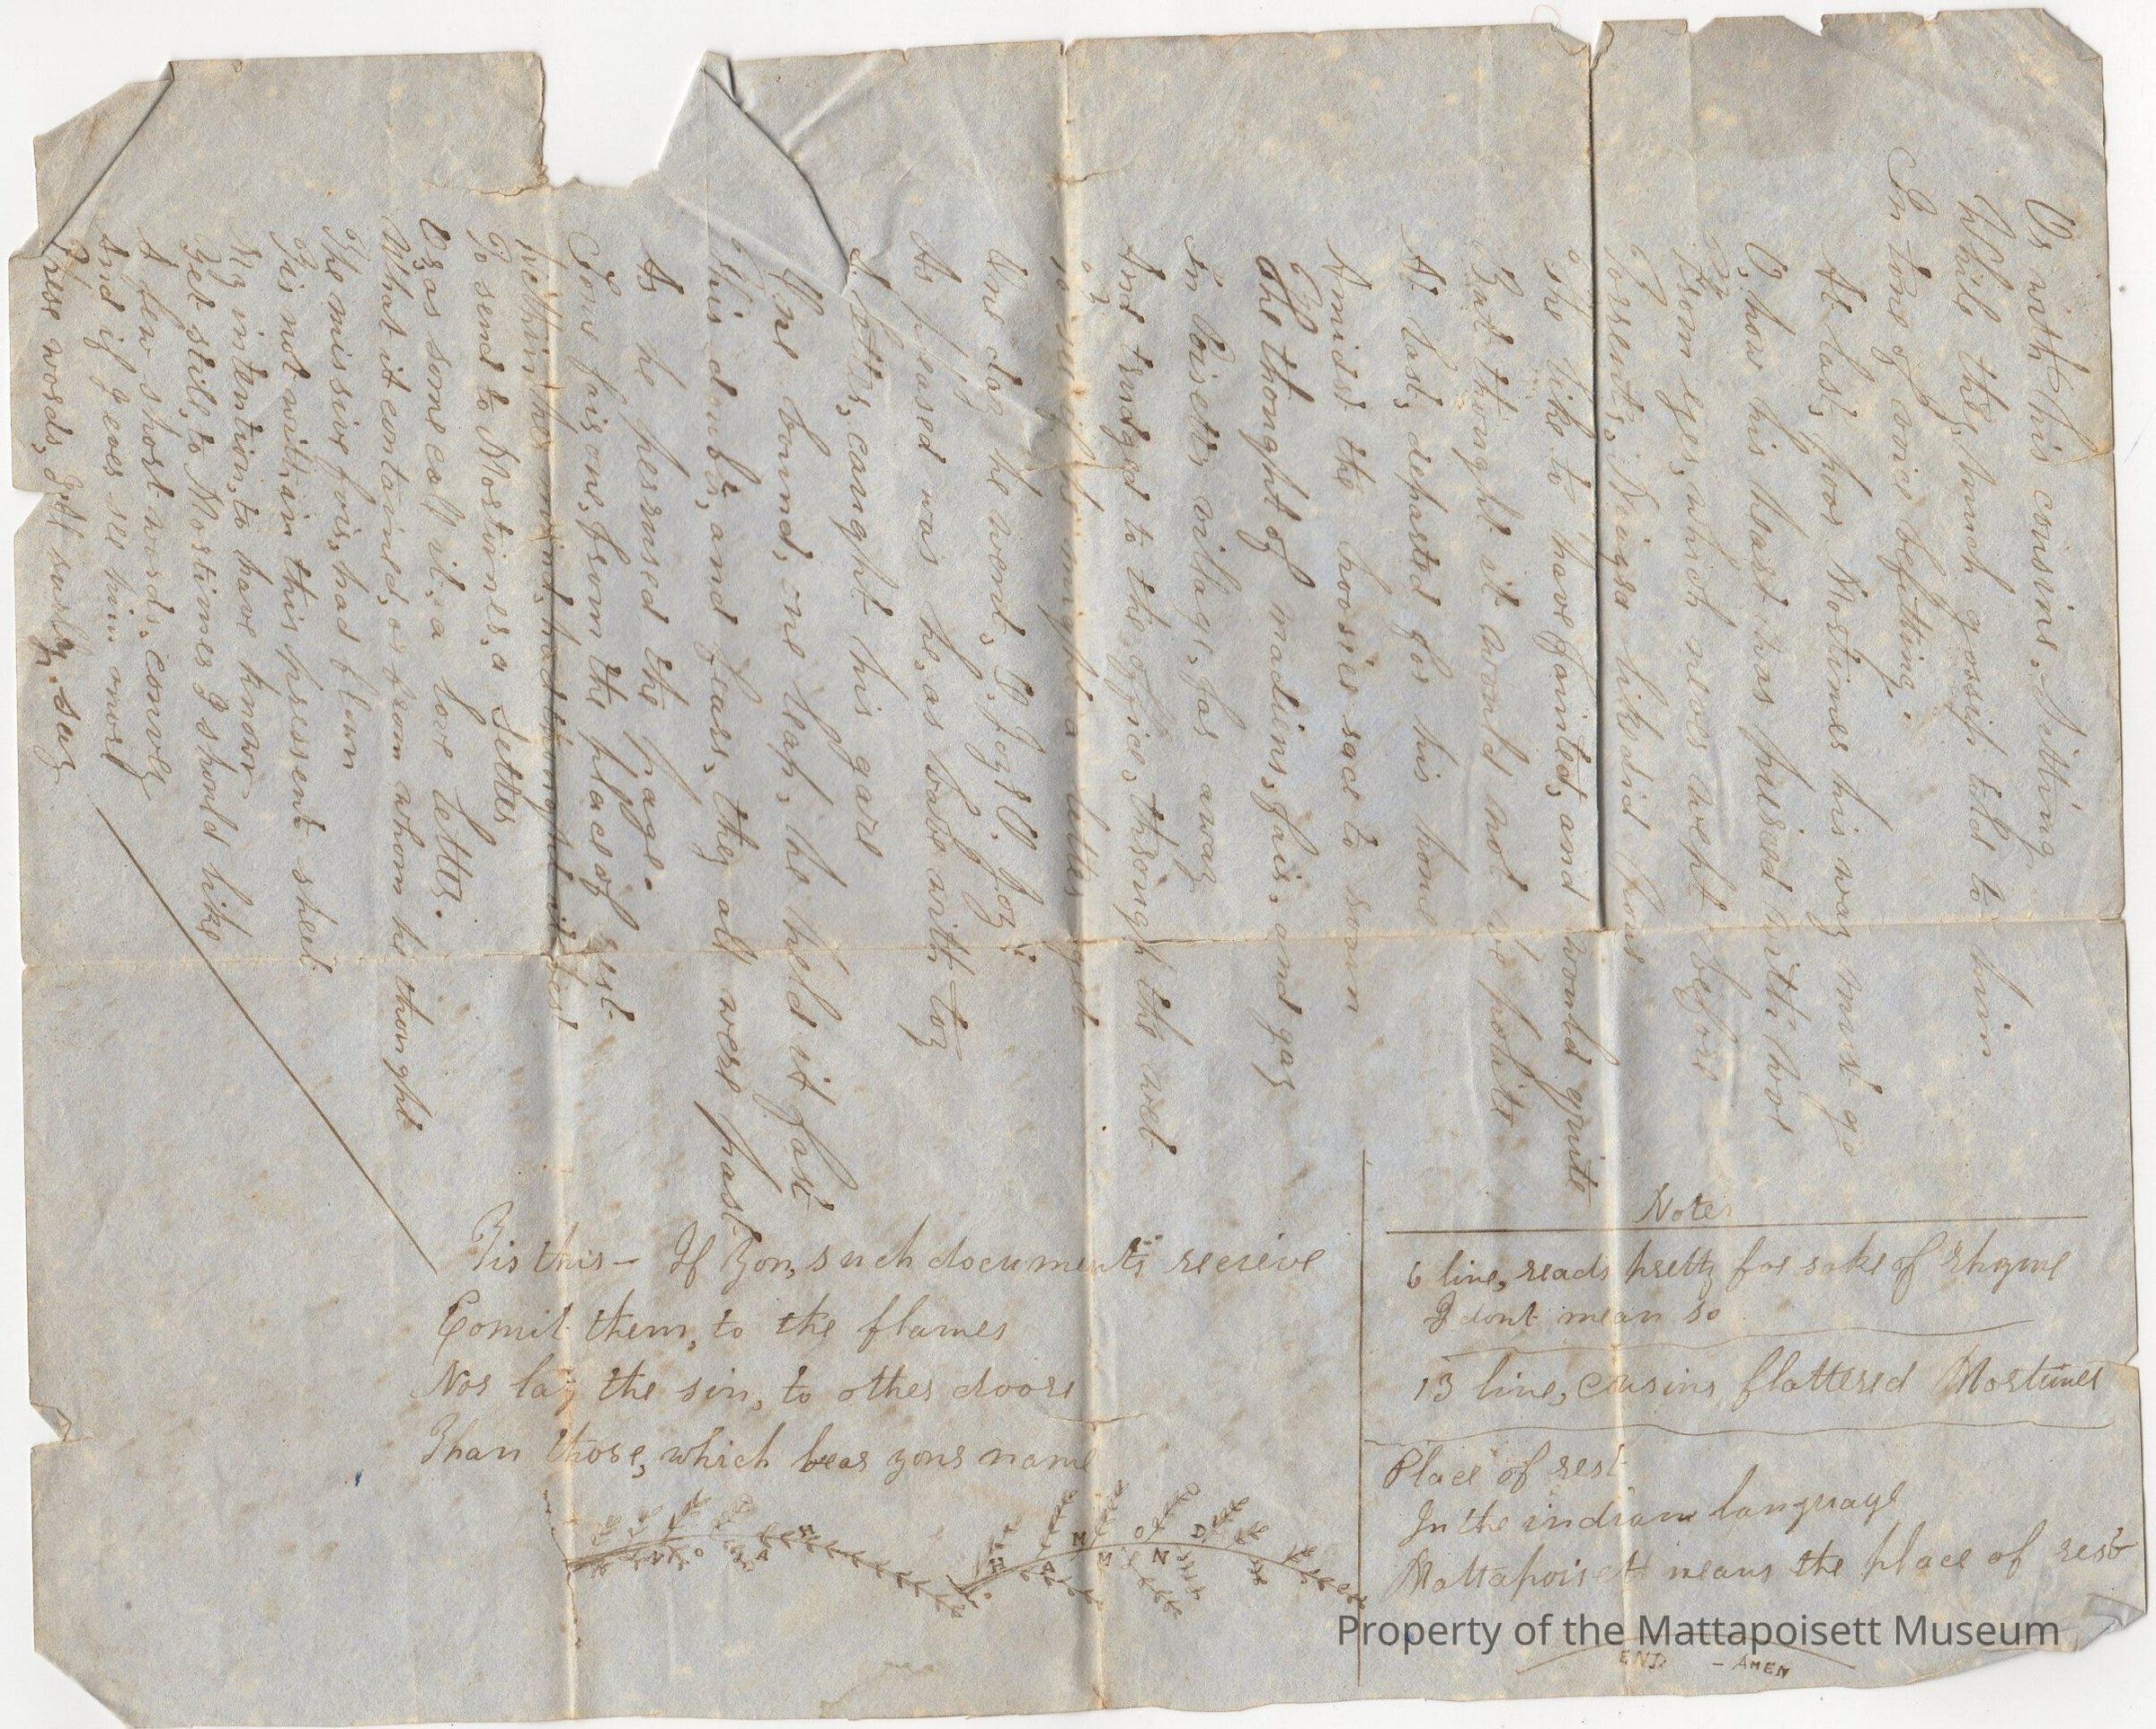 Or with his cousins. Sitting
While they, much gossip told to him
In tone of voice befitting.
At last, poor Mortimer his way must go
O, how his heart was pierced with woe
From eyes, which never wept before
Torrents, Niagra like, did pour
She like to have fainted, and would quite
But thought it would not be polite
At last, departed for his home
Amidst the hoosier race to roam
The thought of madiens, fair, and gay
In  village, far away
And trudged to the office, through the wet
To see if he might a letter get
One day he went, O, joy! O, joy!!
As pleased was he, as babe with toy
A letter, caught his gaze
One bound, one leap, he held it fast
His doubts, and fears, they all were past
As he perused the page.
Some fair one, from the place of rest
Within her mind, had thought it best
To send to Mortimer, a letter
Or, as some call it, a love letter.
What it contained, or from whom he thought
The missive fair, had flown
Tis not writ, in this pressent sheet
My intention, to have known
Yet still, to Mortimer I should like
A few short words, convey
And if I ever see him more
These words, I'll surely, say
Tis this — If you, such documents recieve
Comit them, to the flames
Nor lay the sin, to other doors
Than those, which bear your name
Notes
6 line, reads pretty for sake of rhyme
I dont mean so
13 line, cousins flattered Mortimer
Place of rest
In the indian language
Mattapoisett means the place of rest
END - AMEN
Property of the Mattapoisett Museum